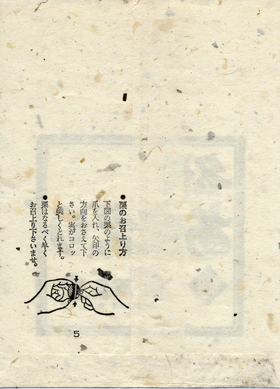 ●栗のお召上り方
下図の栗のように
爪を入れ、矢印の
方向をおさえて下
さい。実がコロッ
と美しくとれます。
●栗はなるべく早く
お召上り下さいませ。
5